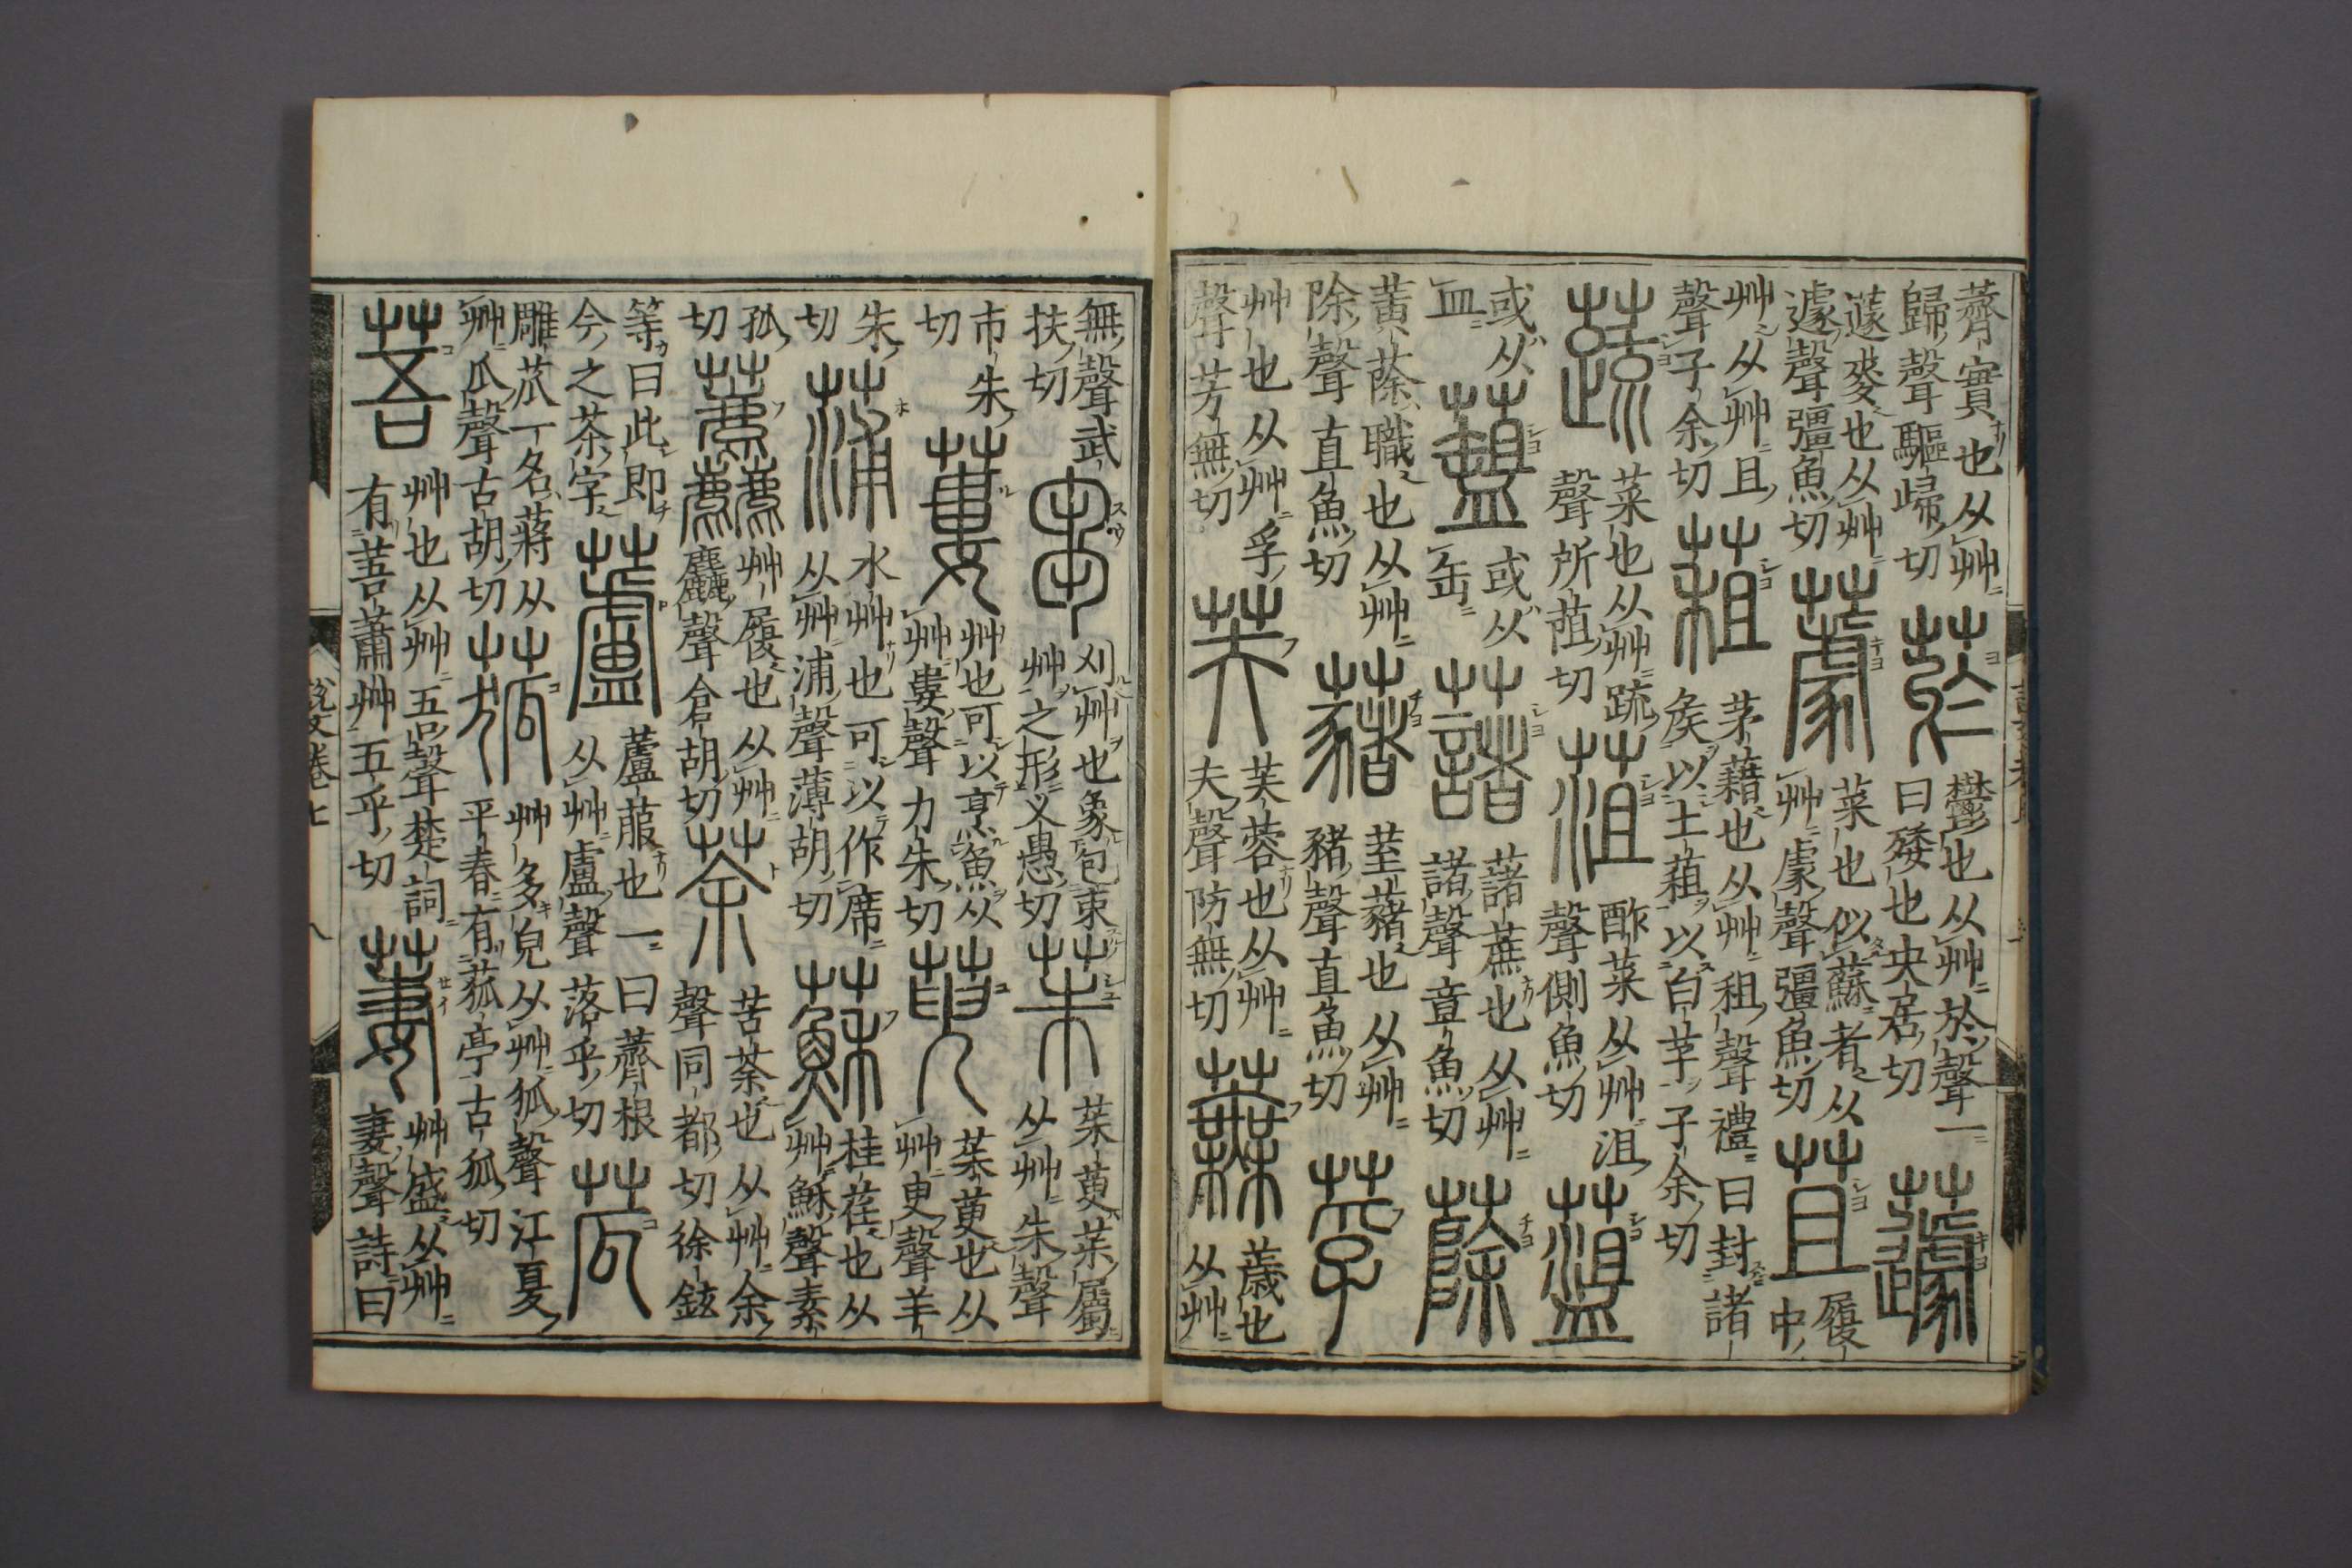 薺實也从艸
歸聲驅歸切
菸
鬱也从艸於聲一
曰矮也央居切
蘧
蘧麥也从艸
遽聲彊魚切
菜也似蘇者从
艸豦聲彊魚切
苴
履
中
艸从艸且
聲子余切
蒩
茅藉也从艸租聲禮曰封諸
矦以土蒩以白茅子余切
蔬
菜也从艸疏
聲所葅切
菹
酢菜从艸沮
聲側魚切
或从
皿
或从
缶
藷
藷蔗也从艸
諸聲章魚切
蒢
黃蒢職也从艸
除聲直魚切
藸
荎藸也从艸
豬聲直魚切
莩
艸也从艸孚
聲芳無切
芙
芙蓉也从艸
夫聲防無切
蕪
薉也
从艸
無聲武
扶切
芻
刈艸也象包束
艸之形叉愚切
茱
茱萸茱屬
从艸朱聲
市朱
切
蔞
艸也可以烹魚从
艸婁聲力朱切
萸
茱萸也从
艸臾聲羊
朱
切
蒲
水艸也可以作席
从艸浦聲薄胡切
蘇
桂荏也从
艸穌聲素
孤
切
艸履也从艸
麤聲倉胡切
荼
苦荼也从艸余
聲同都切徐鉉
等曰此即
今之茶字
蘆
蘆菔也一曰薺根
从艸盧聲落乎切
苽
雕苽一名蔣从
艸瓜聲古胡切
菰
艸多皃从艸狐聲江夏
平春有菰亭古狐切
䓊
艸也从艸吾聲楚詞
有䓊蕭艸五乎切
萋
艸盛从艸
妻聲詩曰
說文卷七
八